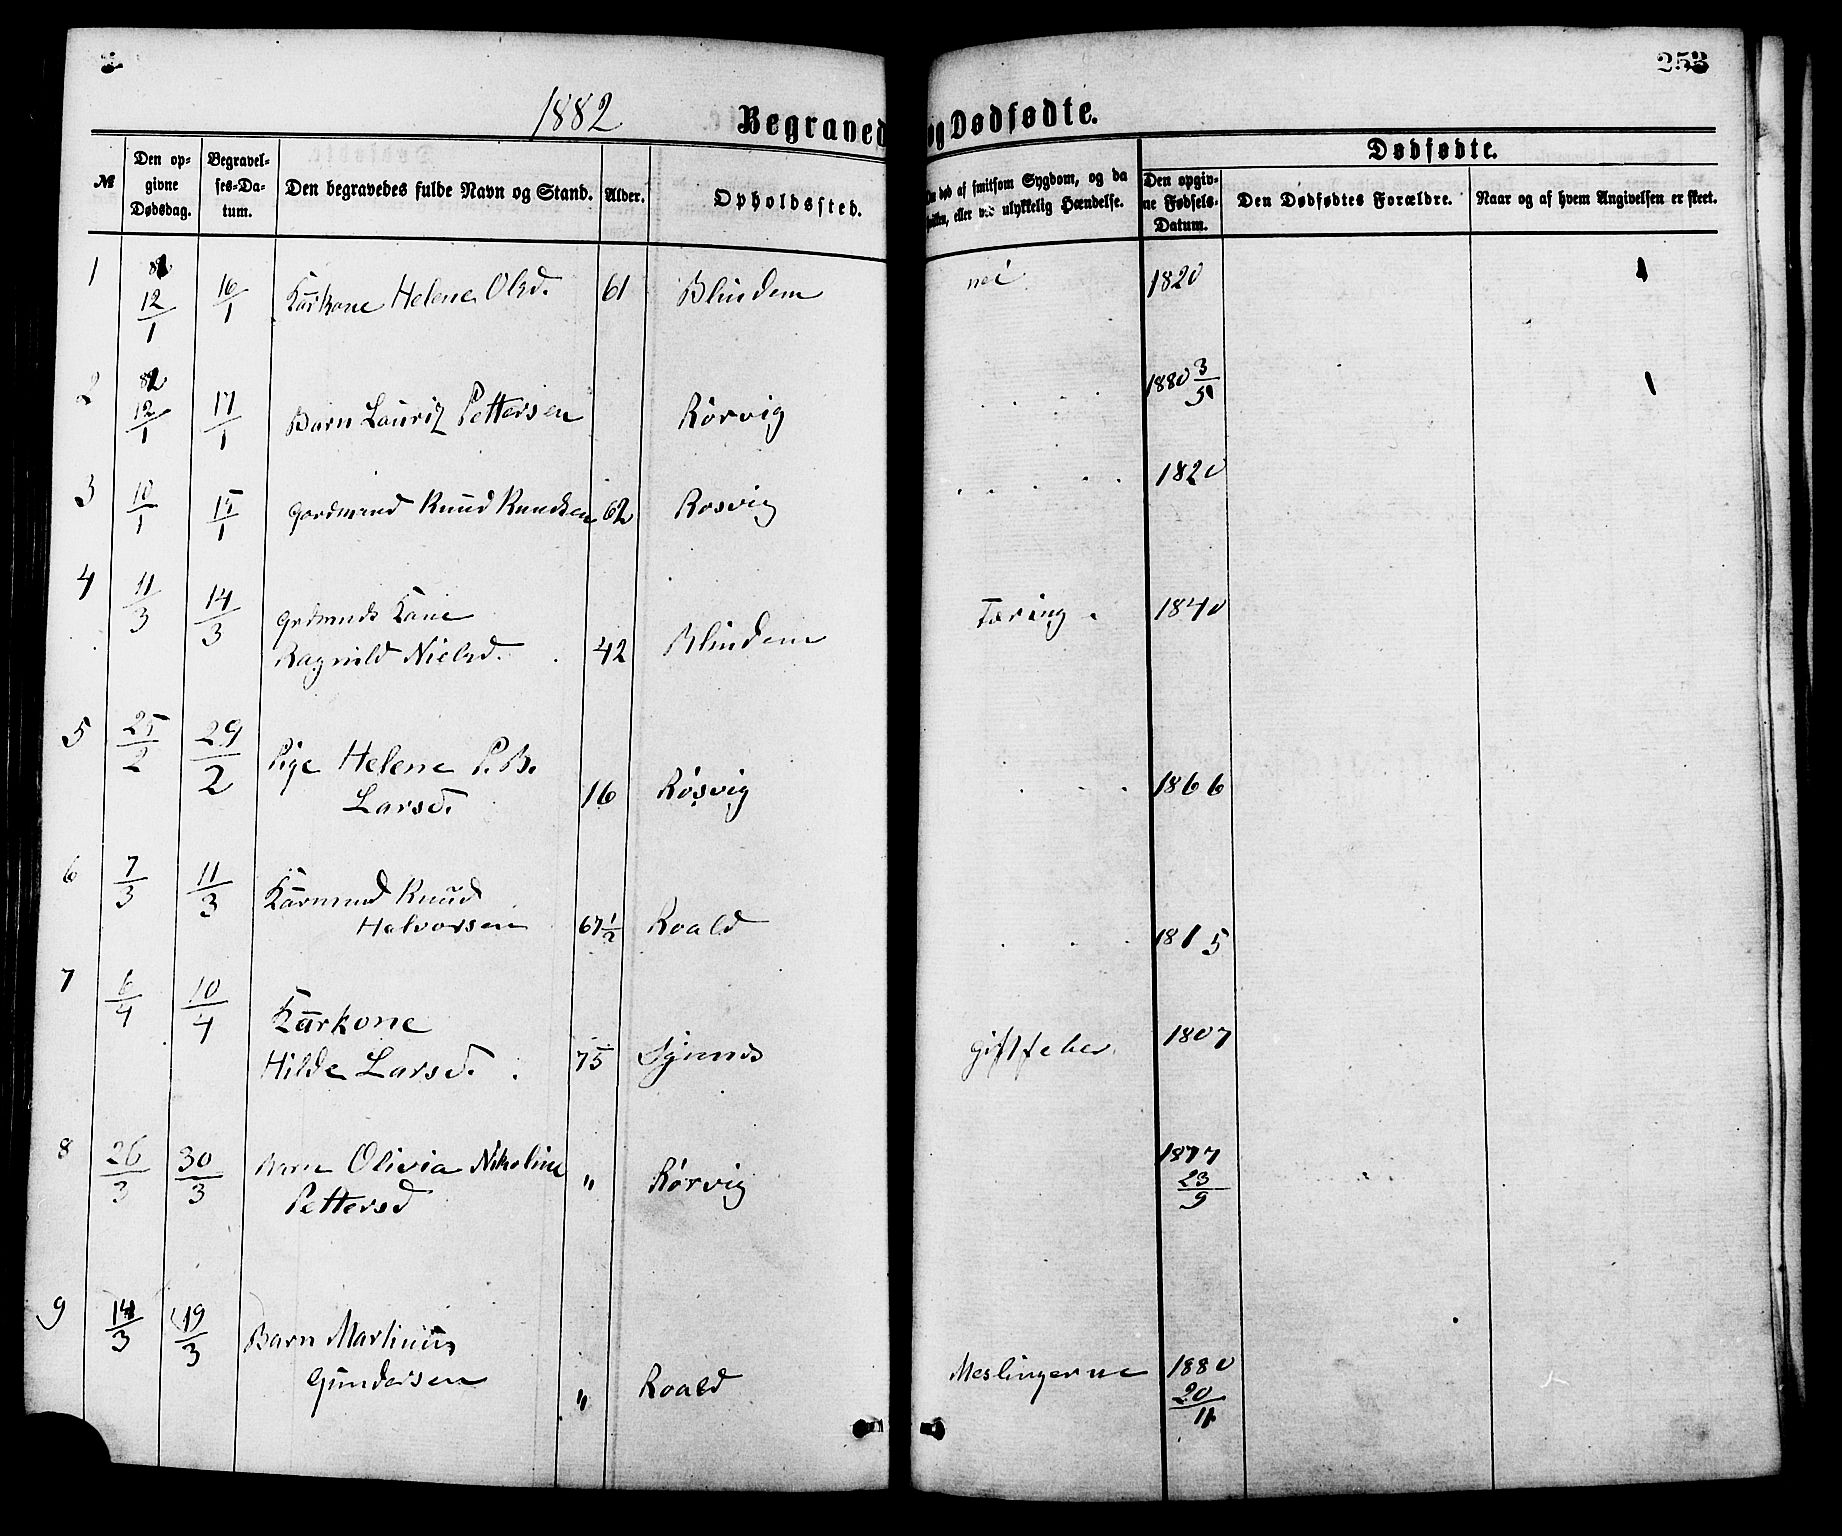 253
1882 Begravede og Dødfødte.
Dødfødte.
№ | Den opgivne Dødsdag. | Begravelses-Datum. | Den begravedes fulde Navn og Stand. | Alder. | Opholdssted. | død af smitsom Sygdom, og da eller ved ulykkelig Hændelse. | Den opgivne Fødsels-Datum. | Den Dødfødtes Forældre. | Naar og af hvem Angivelsen er skeet.
1 | 12/1 | 16/1 | Kårkone Helene Olsd. | 61 | Blindem | nei | 1820
2 | 12/1 | 17/1 | Barn Lauritz Pettersen | Rørvig | . . . . | 1880 3/5
3 | 10/1 | 15/1 | Gardmand Knud Knudsen | 62 | Rosvig | . . . . | 1820
4 | 11/3 | 14/3 | Grdmands Kone
Ragnild Nielsd. | 42 | Blindem | Tæring. | 1840
5 | 25/2 | 29/2 | Pige Helene P. B.
Larsd. | 16 | Røsvig | . . . | 1866
6 | 7/3 | 11/3 | Kårmand Knud
Halvorsen | 67 1/2 | Roald | . . . | 1815
7 | 6/4 | 10/4 | Kårkone
Hilde Larsd. | 75 | Synnes | giftfeber. | 1807
8 | 26/3 | 30/3 | Barn Olivia Nikoline
Pettersd | " | Rørvig | 1877 23/9
9 | 14/3 | 19/3 | Barn Martinus
Gundersen | " | Roald | Meslingerne | 1880 20/11